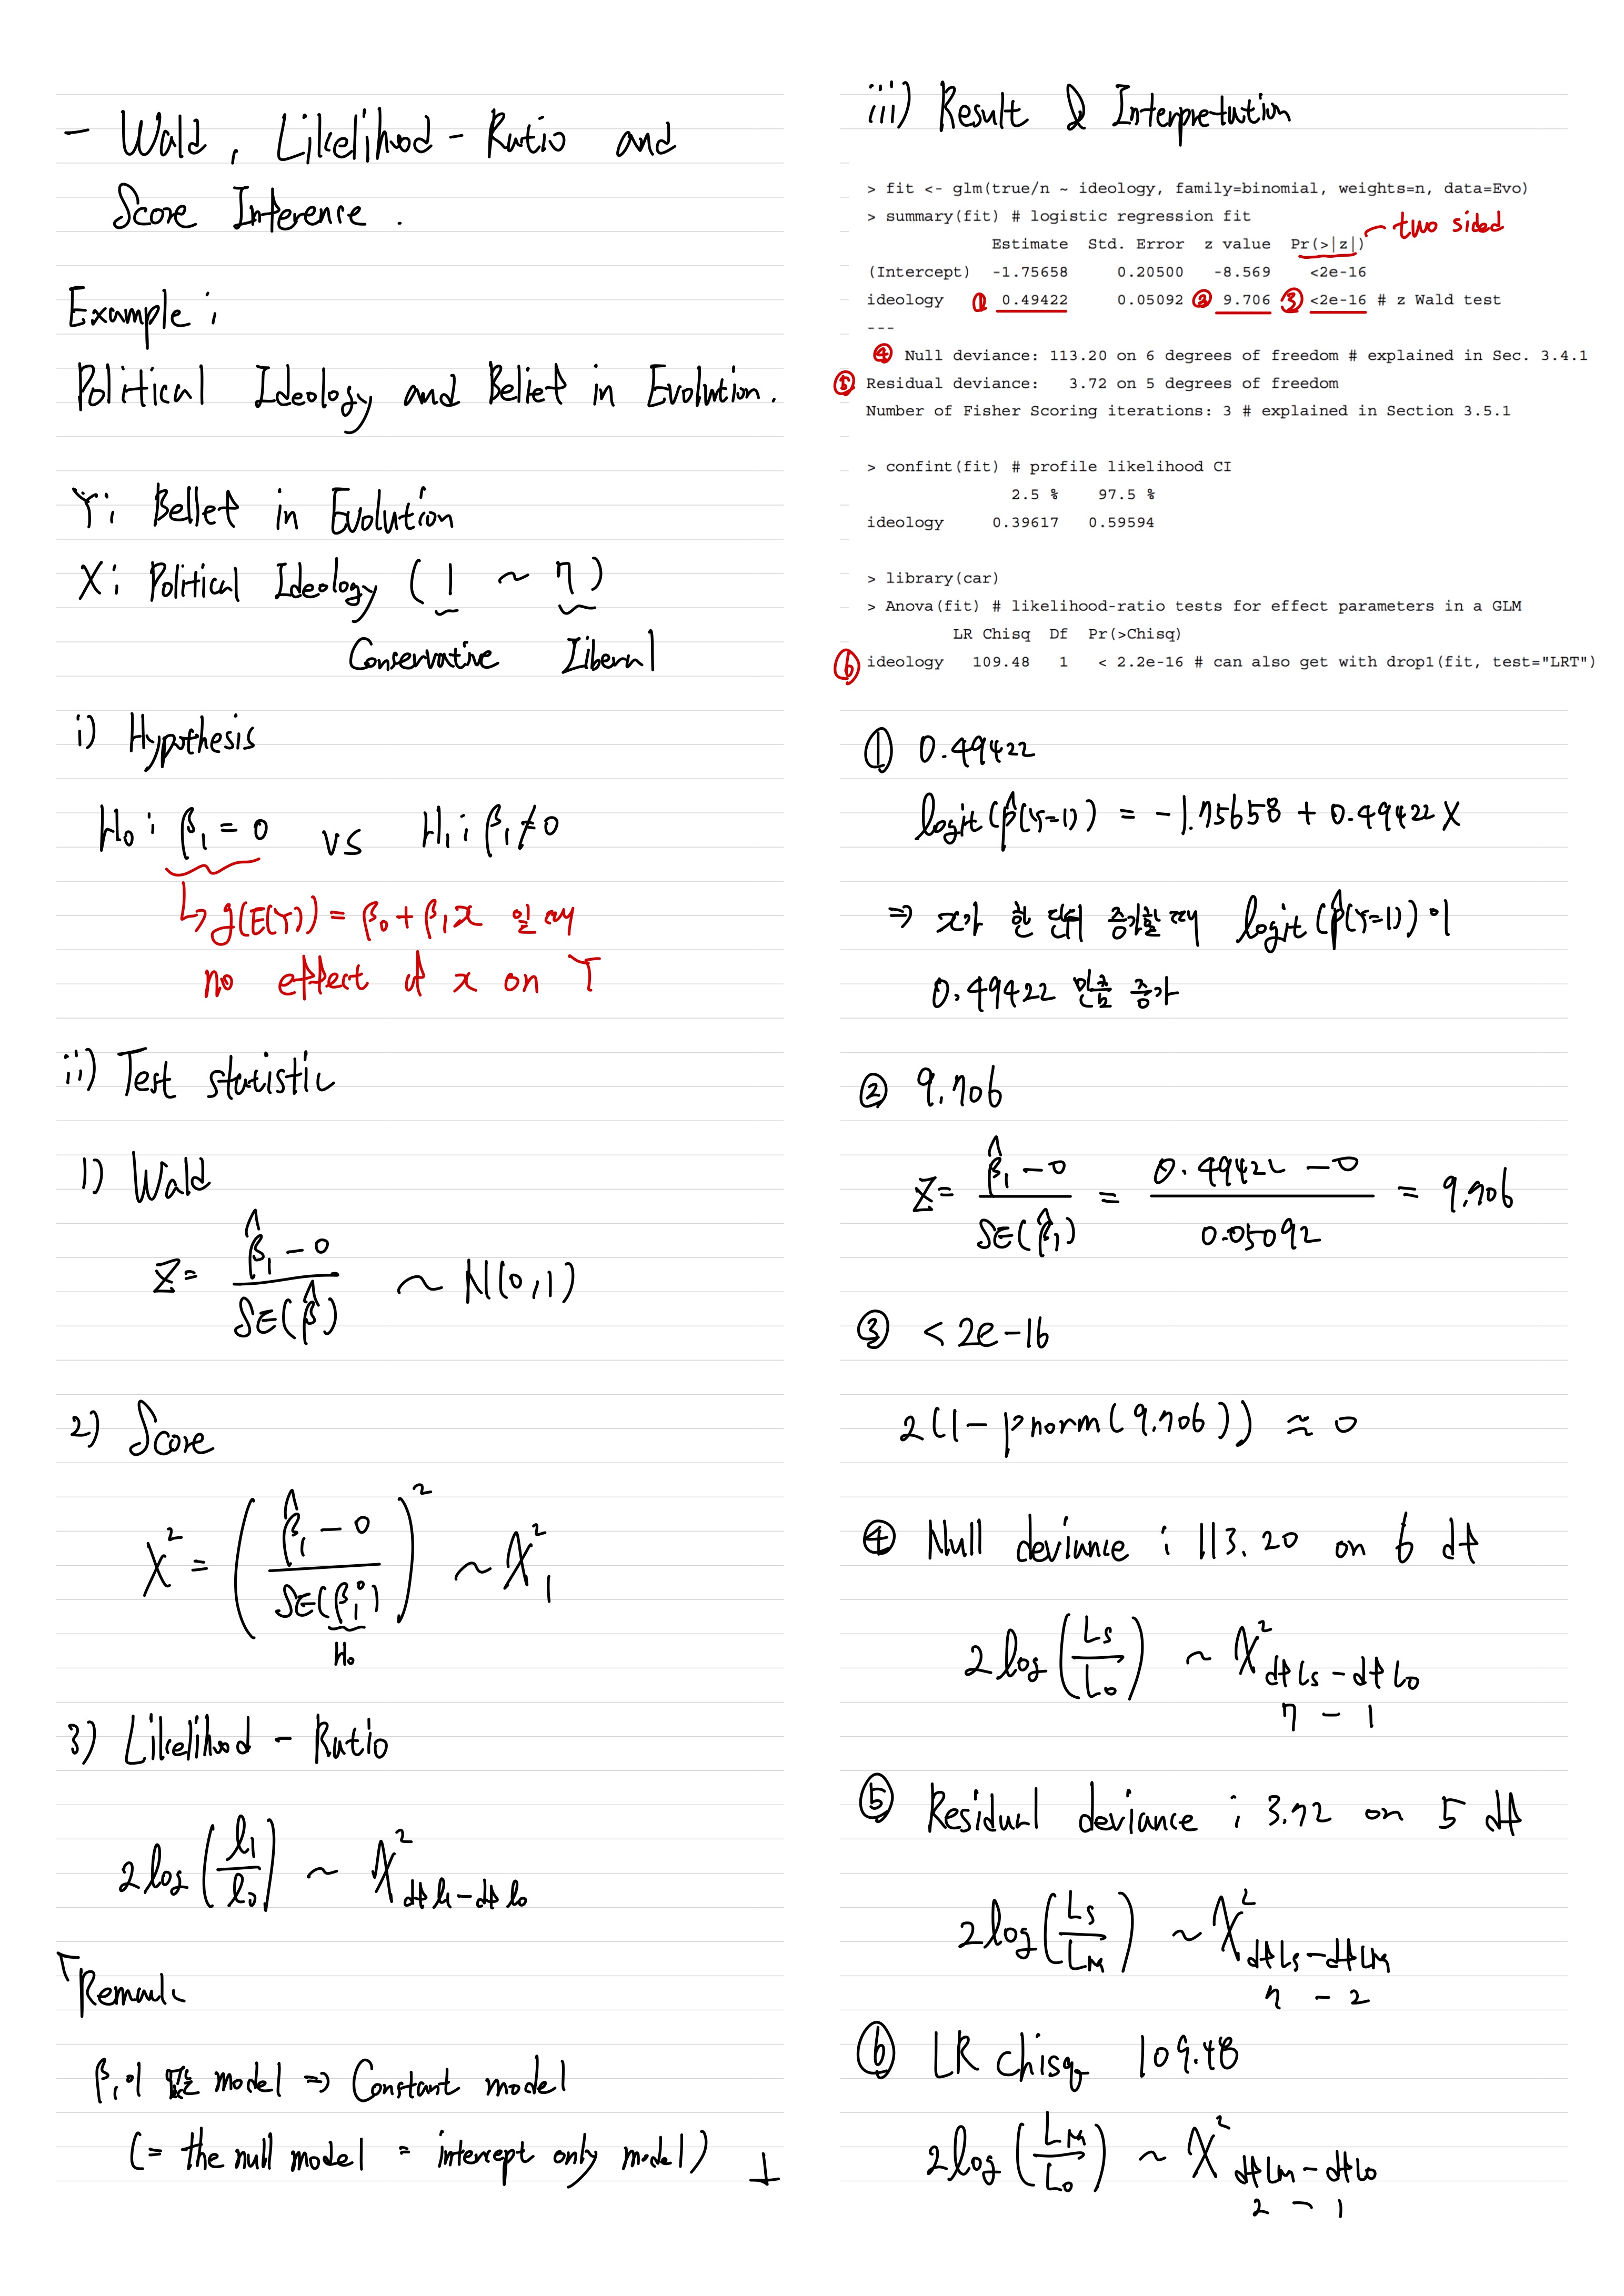 - Wald, Likelihood - Ratio and
Score Inference.
Example ;
Political Ideology and Belief in Evolution.
Y; Belief in Evolution
X; Political Ideology ( 1 ~ 7 )
Conservative Liberal
i) Hypothesis
H₀ ; β₁ = 0 vs H₁ ; β₁ ≠ 0
↳ g(E(Y)) = β₀ + β₁x 일 때
no effect of x on Y
ii) Test statistic
1) Wald
Z = (β̂₁ - 0) / SE(β̂) ~ N(0,1)
2) Score
X² = ( (β̂₁ - 0) / SE(β₁⁰) )² ~ X²₁
H₀
3) Likelihood - Ratio
2 log (l₁ / l₀) ~ X² df l₁ - df l₀
Remark
β₁이 model ⇒ Constant model
(= the null model = intercept only model)
iii) Result & Interpretation
> fit <- glm(true/n ~ ideology, family=binomial, weights=n, data=Evo)
> summary(fit) # logistic regression fit
two sided
Estimate Std. Error z value Pr(>|z|)
(Intercept) -1.75658 0.20500 -8.569 <2e-16
ideology ① 0.49422 0.05092 ② 9.706 ③ <2e-16 # z Wald test
---
④ Null deviance: 113.20 on 6 degrees of freedom # explained in Sec. 3.4.1
⑤ Residual deviance: 3.72 on 5 degrees of freedom
Number of Fisher Scoring iterations: 3 # explained in Section 3.5.1
> confint(fit) # profile likelihood CI
2.5 % 97.5 %
ideology 0.39617 0.59594
> library(car)
> Anova(fit) # likelihood-ratio tests for effect parameters in a GLM
LR Chisq Df Pr(>Chisq)
⑥ ideology 109.48 1 < 2.2e-16 # can also get with drop1(fit, test="LRT")
① 0.49422
logit (p̂(Y=1)) = -1.75658 + 0.49422 X
⇒ x가 한 단위 증가할 때 logit (p̂(Y=1)) 이
0.49422 만큼 증가
② 9.706
Z = (β̂₁ - 0) / SE(β̂₁) = (0.49422 - 0) / 0.05092 = 9.706
③ < 2e-16
2(1 - pnorm(9.706)) ≈ 0
④ Null deviance ; 113.20 on 6 df
2 log (Ls / L₀) ~ X² df Ls - df L₀
7 - 1
⑤ Residual deviance ; 3.72 on 5 df
2 log (Ls / LM) ~ X² df Ls - df LM
7 - 2
⑥ LR chisq 109.48
2 log (LM / L₀) ~ X² df LM - df L₀
2 - 1